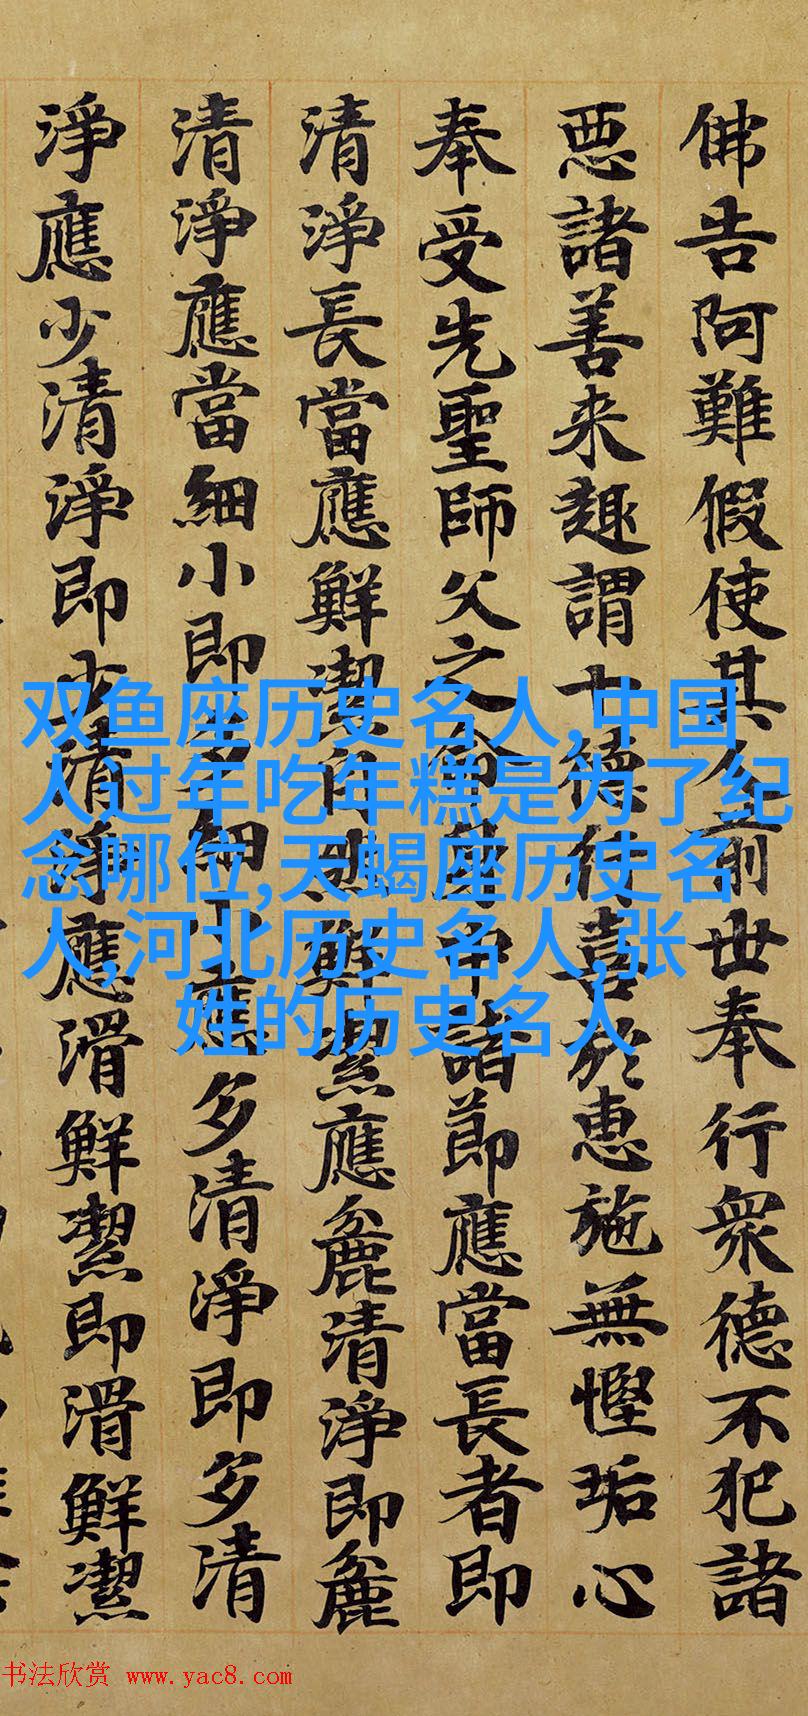 佛告阿難假使其人前世奉行衆德不犯諸
惡諸善来趣謂十德行喜於惠施無慳垢心
奉受先聖師父之命身中諸節應當長者即
清淨長當應鮮潔自然鮮潔應麁清淨即麁
清淨應當細小即多細小應多清淨即多清
淨應少清淨即少清淨應滑鮮潔即滑鮮潔
双鱼座历史名人,中国
人过年吃年糕是为了纪
念哪位,天蝎座历史名
人,河北历史名人,张
姓的历史名人
书法欣赏 www.yac8.com